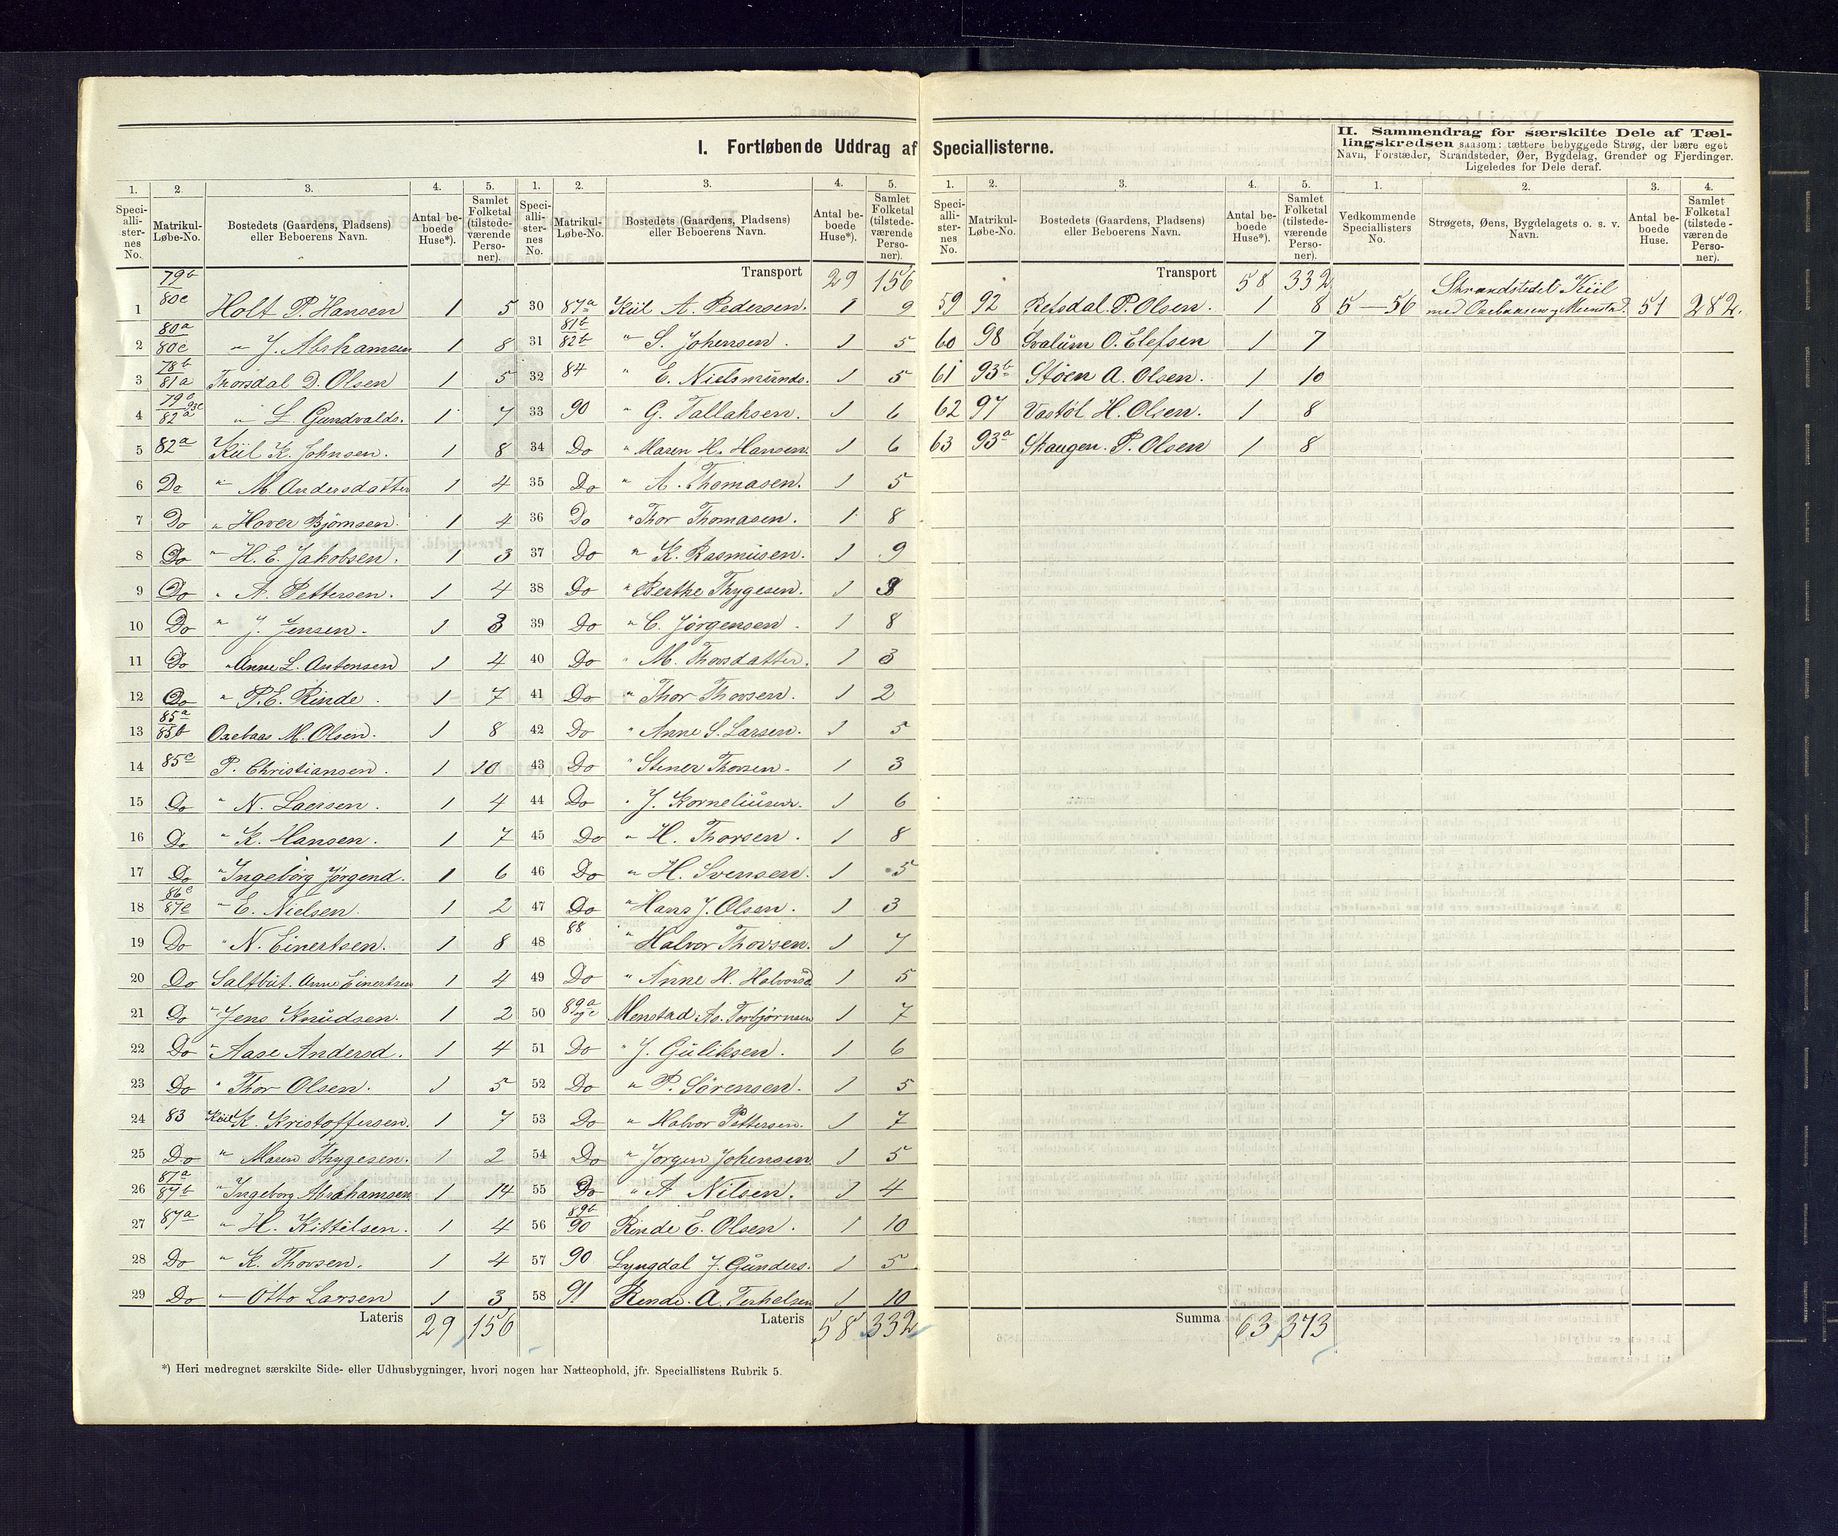 I. Fortløbende Uddrag af Speciallisterne.
II. Sammendrag for særskilte Dele af Tæl-
lingskredsen saasom: tættere bebyggede Strøg, der bære eget
Navn, Forstæder, Strandsteder, Øer, Bygdelag, Grender og Fjerdinger.
Ligeledes for Dele deraf.
1. 2. 3. 4. 5. 1. 2. 3. 4. 5. 1. 2. 3. 4. 5. 1. 2. 3. 4.
Speciallisternes No. Matrikul-Løbe-No. Bostedets (Gaardens, Pladsens) eller Beboerens Navn. Antal beboede Huse*). Samlet Folketal (tilstedeværende Personer).
Speciallisternes No. Matrikul-Løbe-No. Bostedets (Gaardens, Pladsens) eller Beboerens Navn. Antal beboede Huse*). Samlet Folketal (tilstedeværende Personer).
Speciallisternes No. Matrikul-Løbe-No. Bostedets (Gaardens, Pladsens) eller Beboerens Navn. Antal beboede Huse*). Samlet Folketal (tilstedeværende Personer).
Vedkommende Speciallisters No. Strøgets, Øens, Bygdelagets o. s. v. Navn. Antal beboede Huse. Samlet Folketal (tilstedeværende Personer).
1 79b/80c Holt P. Hansen 1 5
2 80a/80c " J. Abrahamsen 1 8
3 78b/81a Thorsdal D. Olsen 1 5
4 82a " L. Gundvalds. 1 7
5 82a Kiil K. Johnsen. 1 8
6 Do " M. Andersdatter 1 4
7 Do " Hover Bjørnsen. 1 4
8 Do " H. E. Jakobsen. 1 3
9 Do " A. Pettersen. 1 4
10 Do " J. Jensen. 1 3
11 Do " Anne L. Antonsen 1 4
12 Do " P. E. Rinde. 1 7
13 85a/85b M. Olsen. 1 8
14 85c P. Christiansen. 1 10
15 Do " N. Laersen. 1 4
16 Do " K. Hansen. 1 7
17 Do " Ingeborg Jørgend. 1 6
18 86c/87c " E. Nielsen. 1 2
19 Do " N. Einertsen. 1 8
20 Do Saltbut. Anne Einertsen 1 4
21 Do " Jens Knudsen. 1 2
22 Do " Aase Andersd. 1 4
23 Do " Thor Olsen. 1 5
24 83 Kiil K. Kristoffersen. 1 7
25 Do " Maren Thygesen. 1 2
26 87a/87b " Ingeborg Abrahamsen 1 14
27 87a " H. Kittilsen. 1 4
28 Do " K. Thovsen. 1 4
29 Do " Otto Larsen 1 3
Lateris 29 156
Transport 29 156
30 87a Kiil A. Pedersen. 1 9
31 81b/82b " S. Johensen. 1 5
32 84 " E. Nielsmunds. 1 5
33 90 " G. Tallaksen. 1 6
34 Do " Maren H. Hansen. 1 6
35 Do " A. Thomasen. 1 5
36 Do " Thor Thomasen. 1 8
37 Do " K. Rasmusen. 1 9
38 Do " Berthe Thygesen. 1
39 Do " C. Jørgensen. 1 8
40 Do " M. Thorsdatter. 1 3
41 Do " Thor Thovsen. 1 2
42 Do " Anne S. Larsen. 1 5
43 Do " Stener Thorsen. 1 3
44 Do " J. Korneliusen. 1 6
45 Do " H. Thorsen. 1 8
46 Do " H. Svensen. 1 5
47 Do " Hans J. Olsen. 1 3
48 88 " Halvor Thovsen. 1 7
49 Do " Anne H. Halvorsd 1 5
50 89a Menstad As. Torbjørnsen 1 7
51 Do " J. Guliksen. 1 6
52 Do " P. Sørensen. 1 5
53 Do " Halvor Pettersen. 1 7
54 Do " Jørgen Johensen 1 5
55 Do " A. Nilsen. 1 4
56 89b/90 Rinde E. Olsen. 1 10
57 90 Lyngdal J. Gunders. 1 5
58 91 Rinde. A. Terkelsen 1 10
Lateris 58 332
Transport 58 332
59 92 P. Olsen. 1 8
60 98 O. Elefsen 1 7
61 93b Støen A. Olsen. 1 10
62 97 Vastøl H. Olsen. 1 8
63 93a Skaugen. P. Olsen 1 8
Summa 63 373
5–56 Strandstedet Kiil
med og Menstad. 51 282.
*) Heri medregnet særskilte Side- eller Udhusbygninger, hvori nogen har Natteophold, jfr. Speciallistens Rubrik 5.